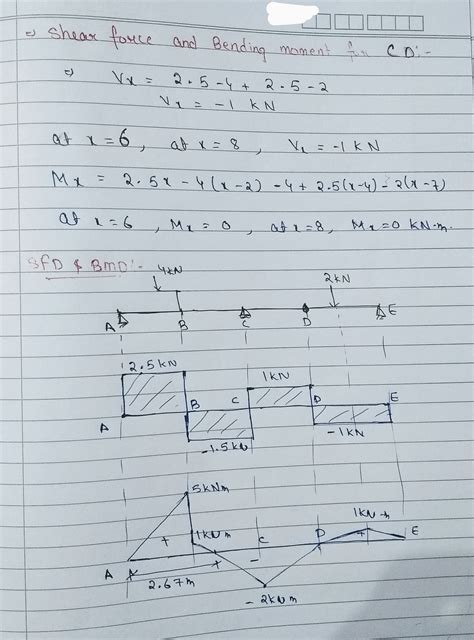 ⇒ Shear force and Bending moment for CD:-
⇒ Vx = 2.5-4+2.5-2
Vx = -1 KN
at x=6, at x=8, Vx = -1 KN
Mx = 2.5x - 4(x-2) - 4 + 2.5(x-4) - 2(x-7)
at x=6, Mx=0, at x=8, Mx=0 KN·m.
SFD & BMD:-
4KN 2KN
A B C D E
2.5KN
1KN
A B C D E
-1.5KN -1KN
5KNm
1KNm 1KN-m
A + C - D + E
2.67m +
-2KNm